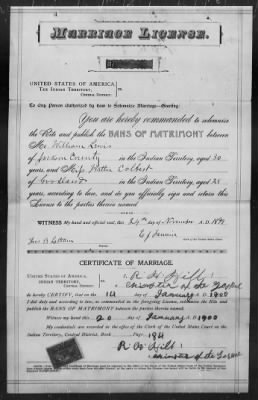 MARRIAGE LICENSE.
UNITED STATES OF AMERICA
THE INDIAN TERRITORY,
CENTRAL DISTRICT.
ss.
To Any Person Authorized by Law to Solemnize Marriage—Greeting:
You are hereby commanded to solemnize
the Rite and publish the BANS OF MATRIMONY between
Mr. William Lewis
of County
in the Indian Territory, aged 30
years, and Miss Colbert
of in the Indian Territory, aged 28
years, according to law, and do you officially sign and return this
License to the parties therein named.
WITNESS my hand and official seal, this 24th day of November A. D. 1899
E J Fannin
CERTIFICATE OF MARRIAGE.
UNITED STATES OF AMERICA,
INDIAN TERRITORY,
CENTRAL DISTRICT.
ss.
I, R H
minister of the Gospel
do hereby CERTIFY, that on the 14 day of January A. D. 1900
I did duly and according to law, as commanded in the foregoing License, solemnize the Rite and
publish the BANS OF MATRIMONY between the parties therein named.
Witness my hand this 20 day of January A. D. 1900
My credentials are recorded in the office of the Clerk of the United States Court in the
Indian Territory, Central District, Book Page 194
R H
minister of the Gospel